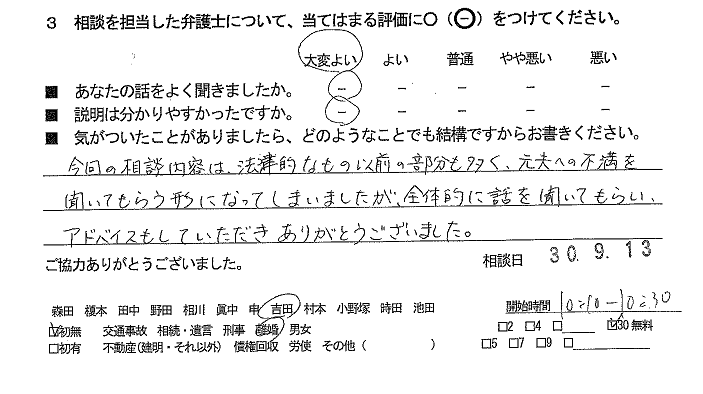 3 相談を担当した弁護士について、当てはまる評価に○（⊖）をつけてください。
大変よい よい 普通 やや悪い 悪い
■ あなたの話をよく聞きましたか。 − − − − −
■ 説明は分かりやすかったですか。 − − − − −
■ 気がついたことがありましたら、どのようなことでも結構ですからお書きください。
今回の相談内容は、法律的なもの以前の部分も多く、元夫への不満を
聞いてもらう形になってしまいましたが、全体的に話を聞いてもらい、
アドバイスもしていただきありがとうございました。
ご協力ありがとうございました。 相談日 30.9.13
森田 榎本 田中 野田 相川 眞中 申 吉田 村本 小野塚 時田 池田 開始時間 10:10-10:30
☑初無 交通事故 相続・遺言 刑事 離婚 男女 □2 □4 □ ☑30 無料
□初有 不動産（建明・それ以外） 債権回収 労使 その他（ ） □5 □7 □9 □